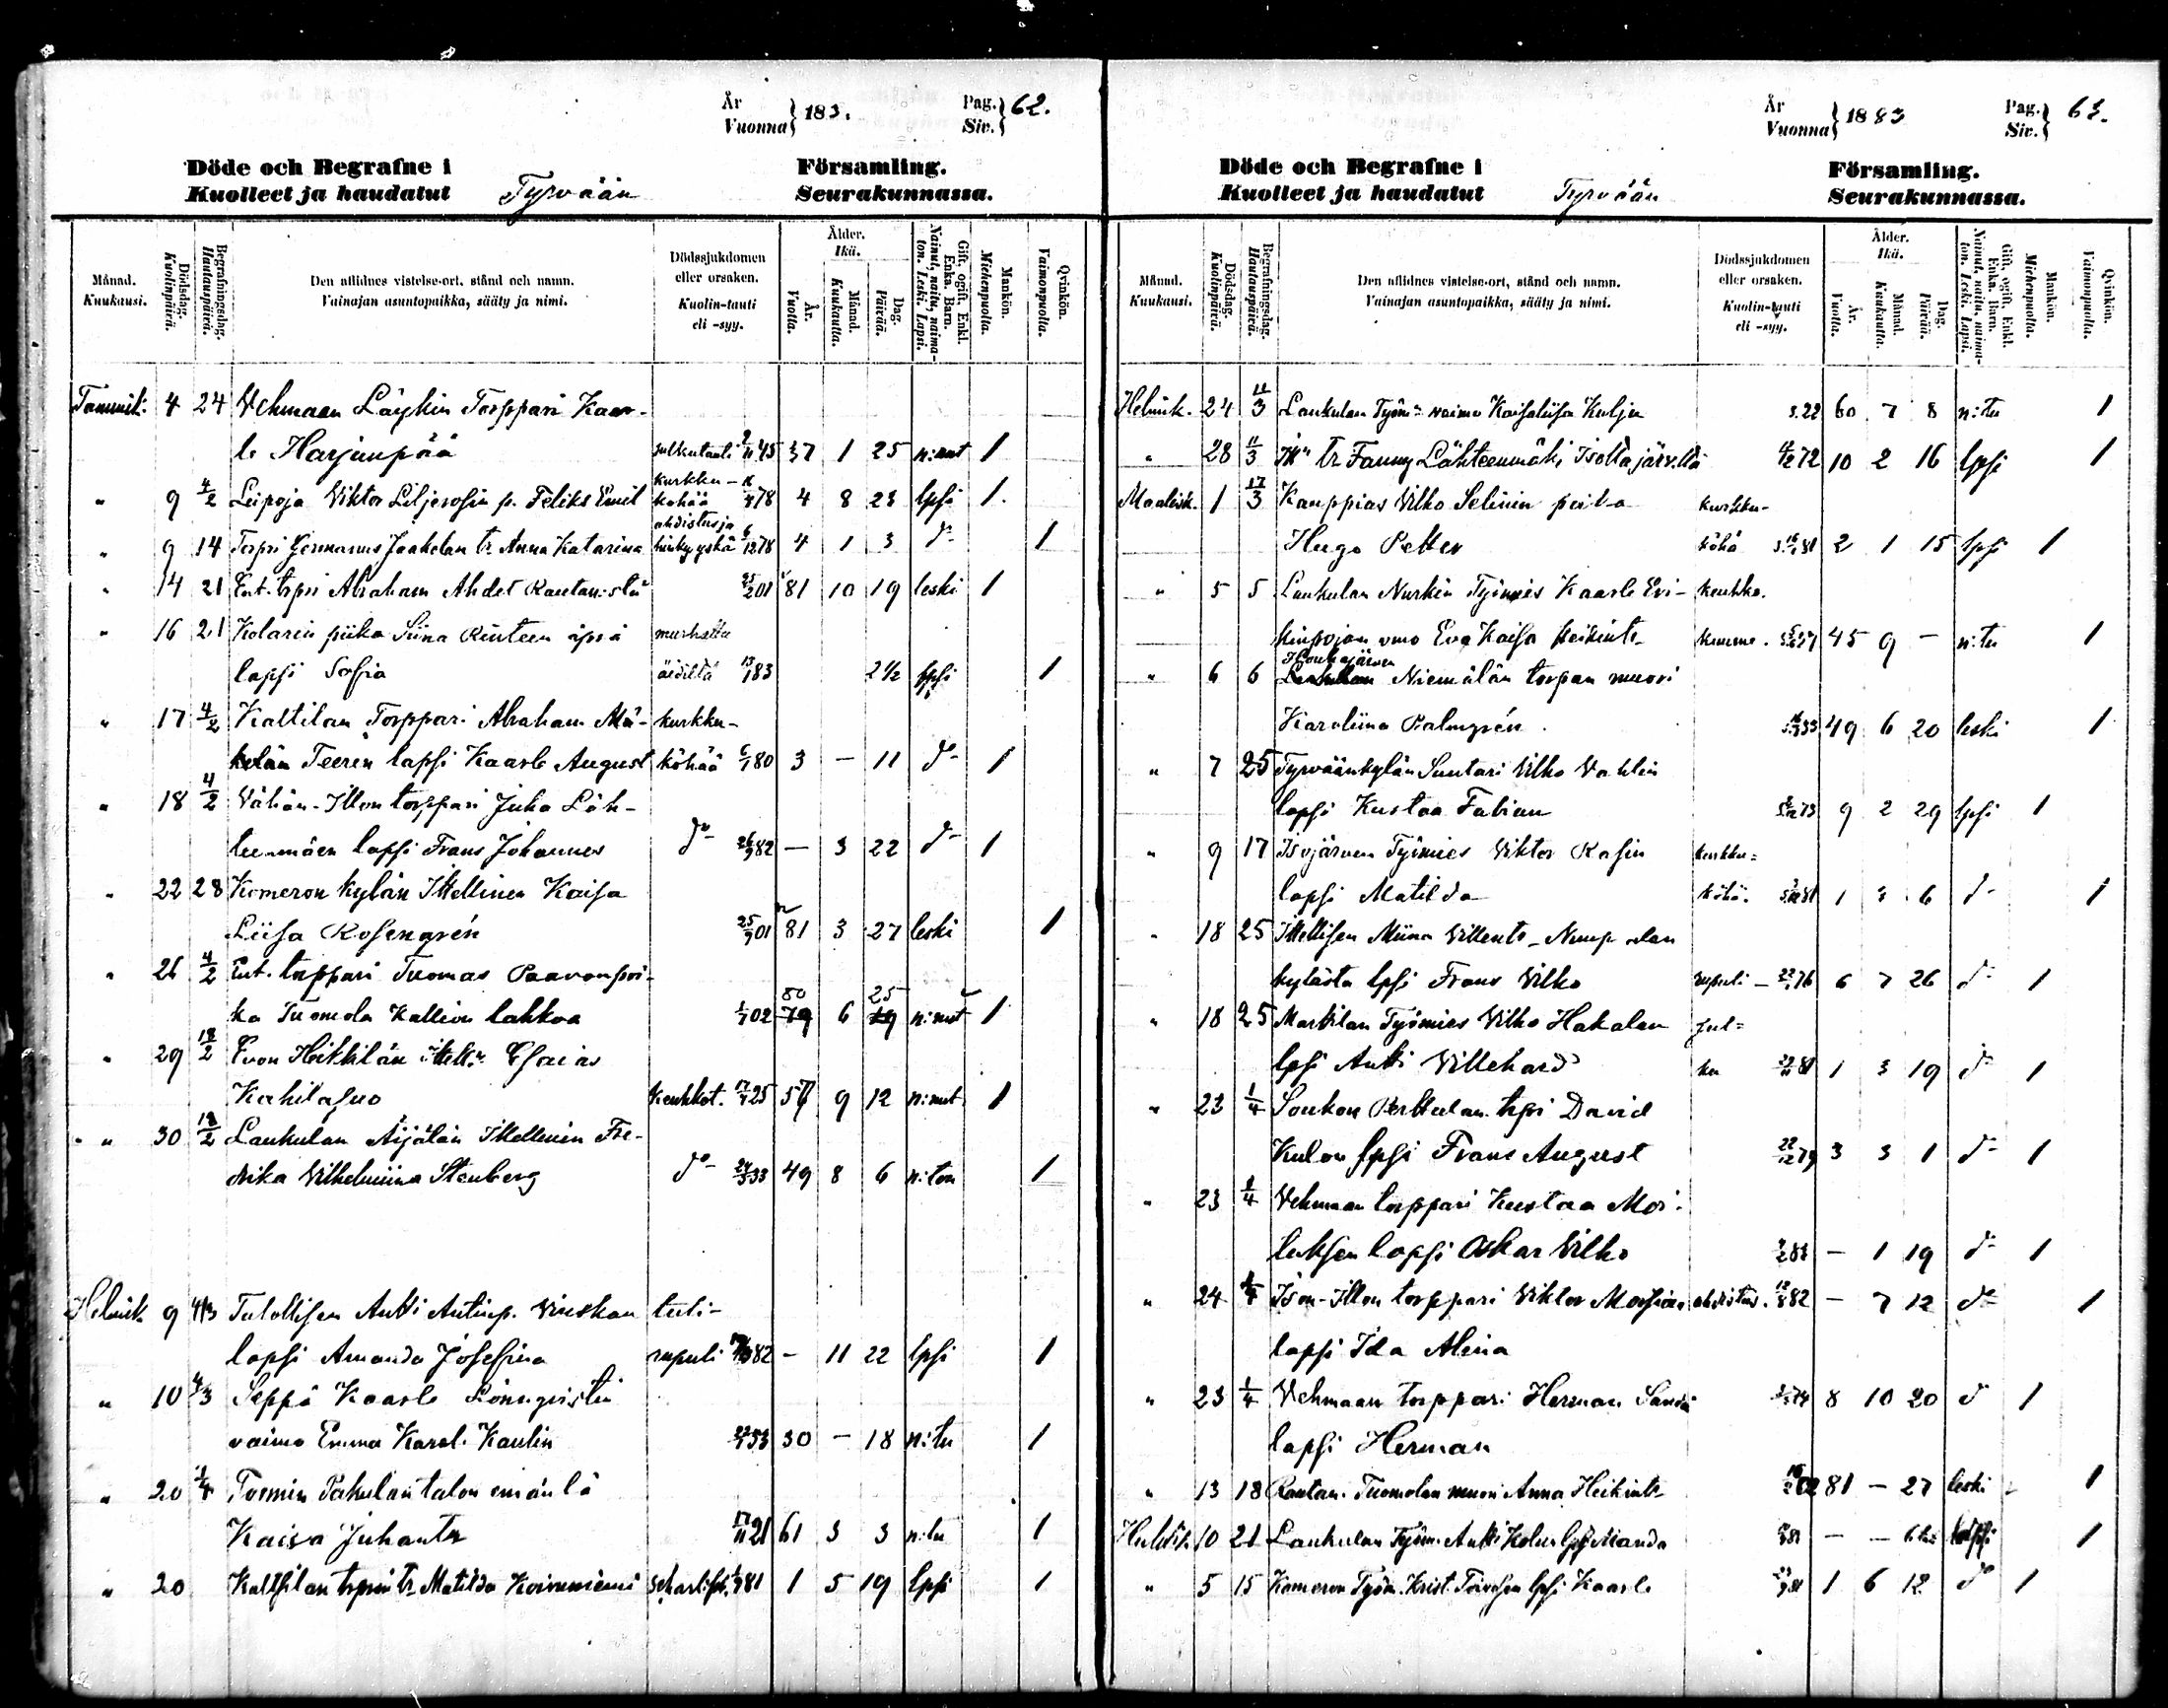 År
Vuonna } 183.
Pag.
Siv. } 62.
Döde och Begrafne i Församling.
Kuolleet ja haudatut Tyrvään Seurakunnassa.
Månad. Kuukausi.
Dödsdag. Kuolinpäivä.
Begrafningsdag. Hautauspäivä.
Den aflidnes vistelse-ort, stånd och namn.
Vainajan asuntopaikka, sääty ja nimi.
Dödssjukdomen eller orsaken.
Kuolin-tauti eli -syy.
Ålder. Ikä.
År. Vuotta.
Månad. Kuukautta.
Dag. Päivää.
Gift, ogift, Enkl. Enka. Barn.
Nainut, naitu, naimaton. Leski. Lapsi.
Mankön. Miehenpuolta.
Qvinkön. Vaimonpuolta.
Tammik. 4 24 Vehmaan Läykin Torppari Kaar-
le Harjunpää 2/11 45 37 1 25 n:nut 1
kurkku-
" 9 4/2 Viktor p. Feliks Emil köhää 78 4 8 23 lpsi 1.
ahdistus ja
" 9 14 Jaakolan tr Anna Katarina hinkuyskä 6/12 78 4 1 3 d:o 1
" 14 21 Ent. trpri Abraham Ahdet 25/2 01 81 10 19 leski 1
" 16 21 Kolarin piika Siina Rinteen äpärä murhattu
lapsi Sofia äidiltä 13/1 83 2½ lpsi 1
" 17 4/2 Kaltilan Torppari Abraham Mä- kurkku-
kelän Teeren lapsi Kaarle August köhää 6/1 80 3 — 11 d:o 1
" 18 4/2 Vähän-Illon torppari Juha Läh-
teenmäen lapsi Frans Johannes d:o 26/9 82 — 3 22 d:o 1
" 22 28 Komeron kylän Ittellinen Kaisa
Liisa Rosengrén 25/9 01 81 3 27 leski 1
" 26 4/2 Ent. torppari Tuomas Paavonpoi-
ka Tuomola Kallion lahkoa 1/7 02 80 79 6 25 19 n:nut 1
" 29 18/2 Evon Heikkilän Ittell: Esaias
Kahilasuo Keuhkot. 17/4 25 57 9 12 n:nut 1
" 30 18/2 Laukulan Äijälän Ittellinen Fre-
drika Vilhelmiina Stenberg d:o 24/5 33 49 8 6 n:ton 1
Helmik. 9 4/3 Antti Antinp. lapsi tuli-
lapsi Amanda Josefina rupuli 82 — 11 22 lpsi 1
" 10 4/3 Seppä Kaarle Lönnqvistin
vaimo Emma Karol. Kaulin 53 30 — 18 n:tu 1
" 20 1/4 Tormin Pakulan talon emäntä
Kaisa Juhantr 17/11 21 61 3 3 n:tu 1
" 20 Kaltsilan trprin tr Matilda Koivuniemi 1/9 81 1 5 19 lpsi 1
År
Vuonna } 1883
Pag.
Siv. } 63.
Döde och Begrafne i Församling.
Kuolleet ja haudatut Tyrvään Seurakunnassa.
Månad. Kuukausi.
Dödsdag. Kuolinpäivä.
Begrafningsdag. Hautauspäivä.
Den aflidnes vistelse-ort, stånd och namn.
Vainajan asuntopaikka, sääty ja nimi.
Dödssjukdomen eller orsaken.
Kuolin-tauti eli -syy.
Ålder. Ikä.
År. Vuotta.
Månad. Kuukautta.
Dag. Päivää.
Gift, ogift, Enkl. Enka. Barn.
Nainut, naitu, naimaton. Leski. Lapsi.
Mankön. Miehenpuolta.
Qvinkön. Vaimonpuolta.
Helmik. 24 11/3 Laukulan Työm: vaimo Kaisaliisa Kulju 22 60 7 8 n:tu 1
" 28 11/3 tr Fanny Lähteenmäki Isoltajärv:ltä 72 10 2 16 lpsi 1
Maalisk. 1 17/3 Kauppias Vilho Selinin poika kurkku-
Hugo Petter köhä 81 2 1 15 lpsi 1
" 5 5 Laukulan Nurkin Työmies Kaarle Eri- keuhko.
kinpojan vmo Eva Kaisa Heikintr. kuume. 45 9 — n:tu 1
Houhajärven
" 6 6 Laukulan Niemälän torpan muori
Karoliina Palmgrén. 33 49 6 20 leski 1
" 7 25 Tyrväänkylän Suutari Vilho Vahlin
lapsi Kustaa Fabian 73 9 2 29 lpsi 1
" 9 17 Isojärven Työmies Viktor Rasin kurkku=
lapsi Matilda köhä. 81 1 3 6 d:o 1
" 18 25 Ittellisen Miina Villentr. -
kylästä lpsi Frans Vilho rupuli 76 6 7 26 d:o 1
" 18 25 Markilan Työmies Vilho Hakalan
lpsi Antti Villehard 81 1 3 19 d:o 1
" 23 1/4 Soukon Perttulan trpri David
Kulon lpsi Frans August 22/12 79 3 3 1 d:o 1
" 23 1/4 Vehmaan torppari Kustaa Moi-
lapsi Oskar Vilho 83 — 1 19 d:o 1
" 24 1/4 Ison-Illon torppari Viktor ahdistus. 12/8 82 — 7 12 d:o 1
lapsi Ida Alina
" 23 1/4 Vehmaan torppari Herman 74 8 10 20 d:o 1
lapsi Herman
" 13 18 Rautan. Tuomolan muori Anna Heikintr 02 81 — 27 leski 1
Huhtik. 10 21 Laukulan Työm. Antti lpsi Manda — — lapsi 1
" 5 15 Komeron Työm. Krist. Toivosen lpsi Kaarle 81 1 6 12 d:o 1